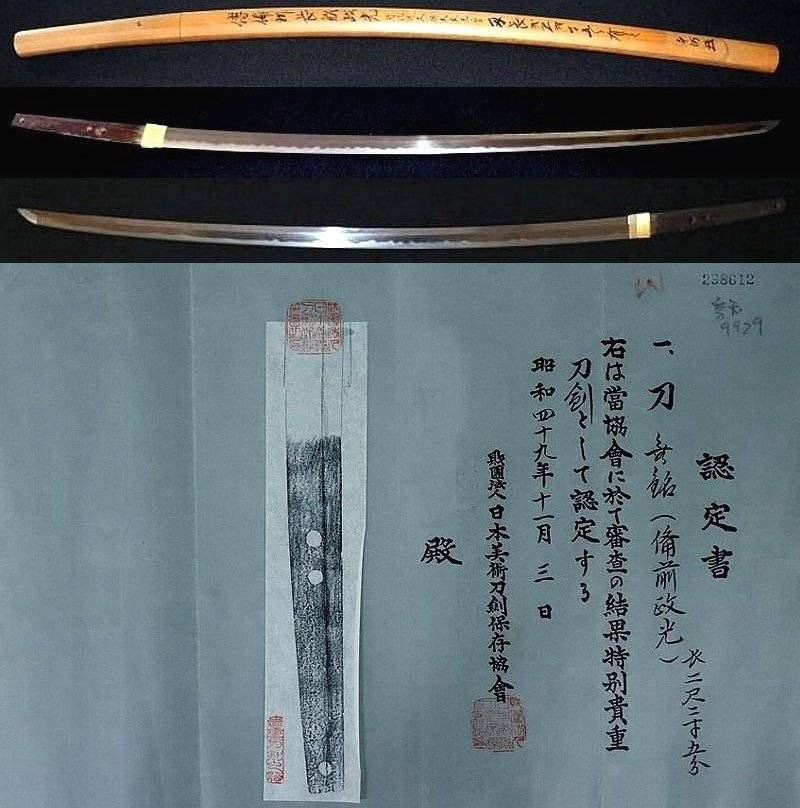 傳備州長船政光
298612
9929
認定書
一、刀 無銘（備前政光）長二尺二寸五分
右は當協會に於て審査の結果特別貴重
刀劍として認定する
昭和四十九年十一月三日
財團法人日本美術刀劍保存協會
殿